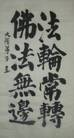 法輪常轉
佛法無邊